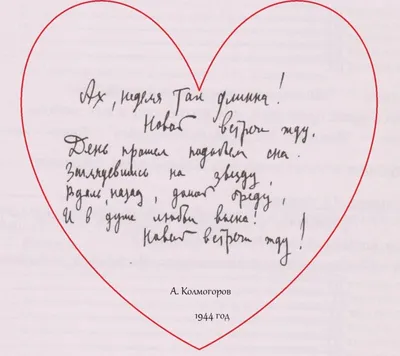 Ах, неделя так длинна!
Новой встречи жду.
День прошел подобьем сна.
Заглядевшись на звезду,
назад, домой бреду,
И в душе любви весна!
Новой встречи жду!
А. Колмогоров
1944 год